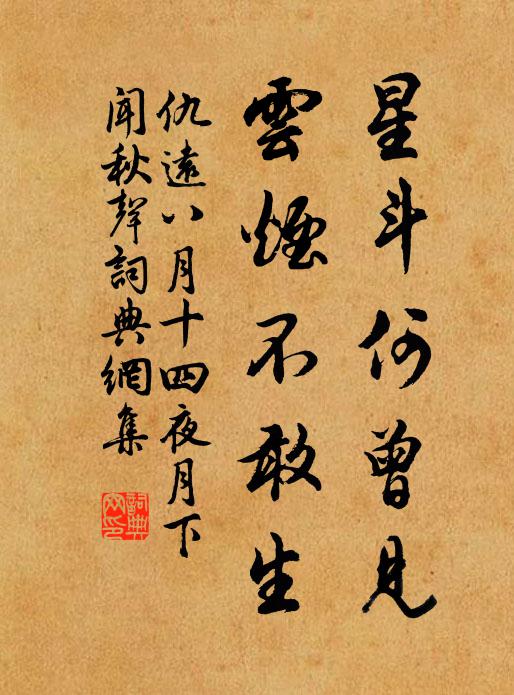 星斗何曾見
雲煙不敢生
仇遠八月十四夜月下
聞秋聲詞典網集
詞典
网印